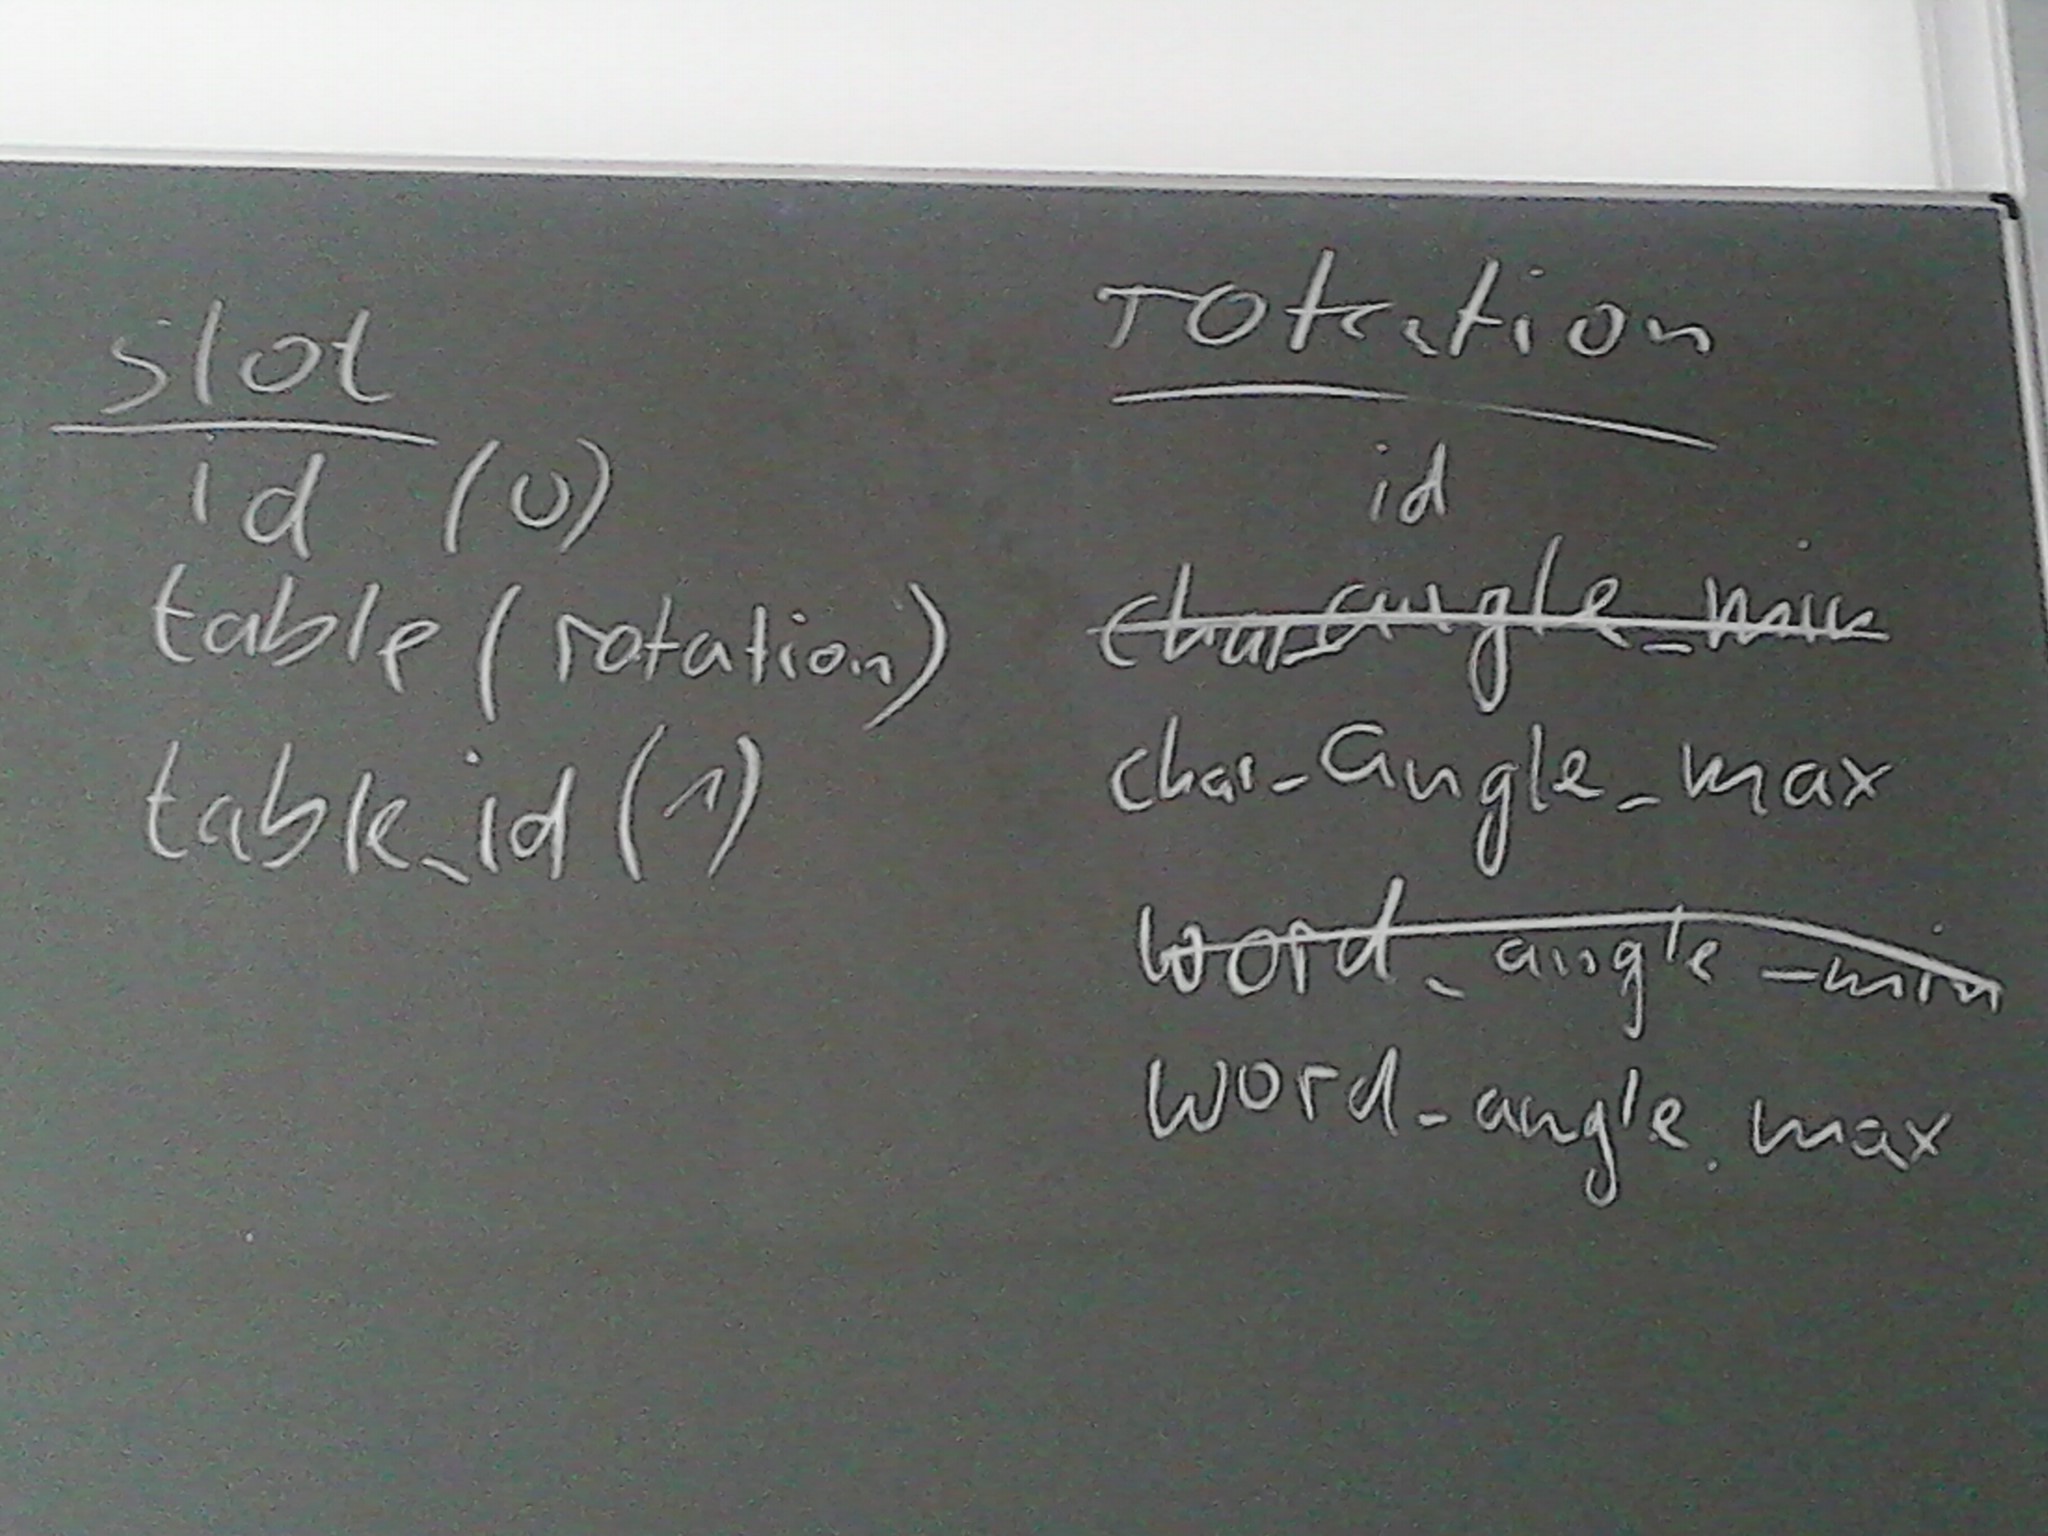 slot
id (0)
table (rotation)
table_id (1)
rotation
id
char_angle_min
char_angle_max
word_angle_min
word_angle_max